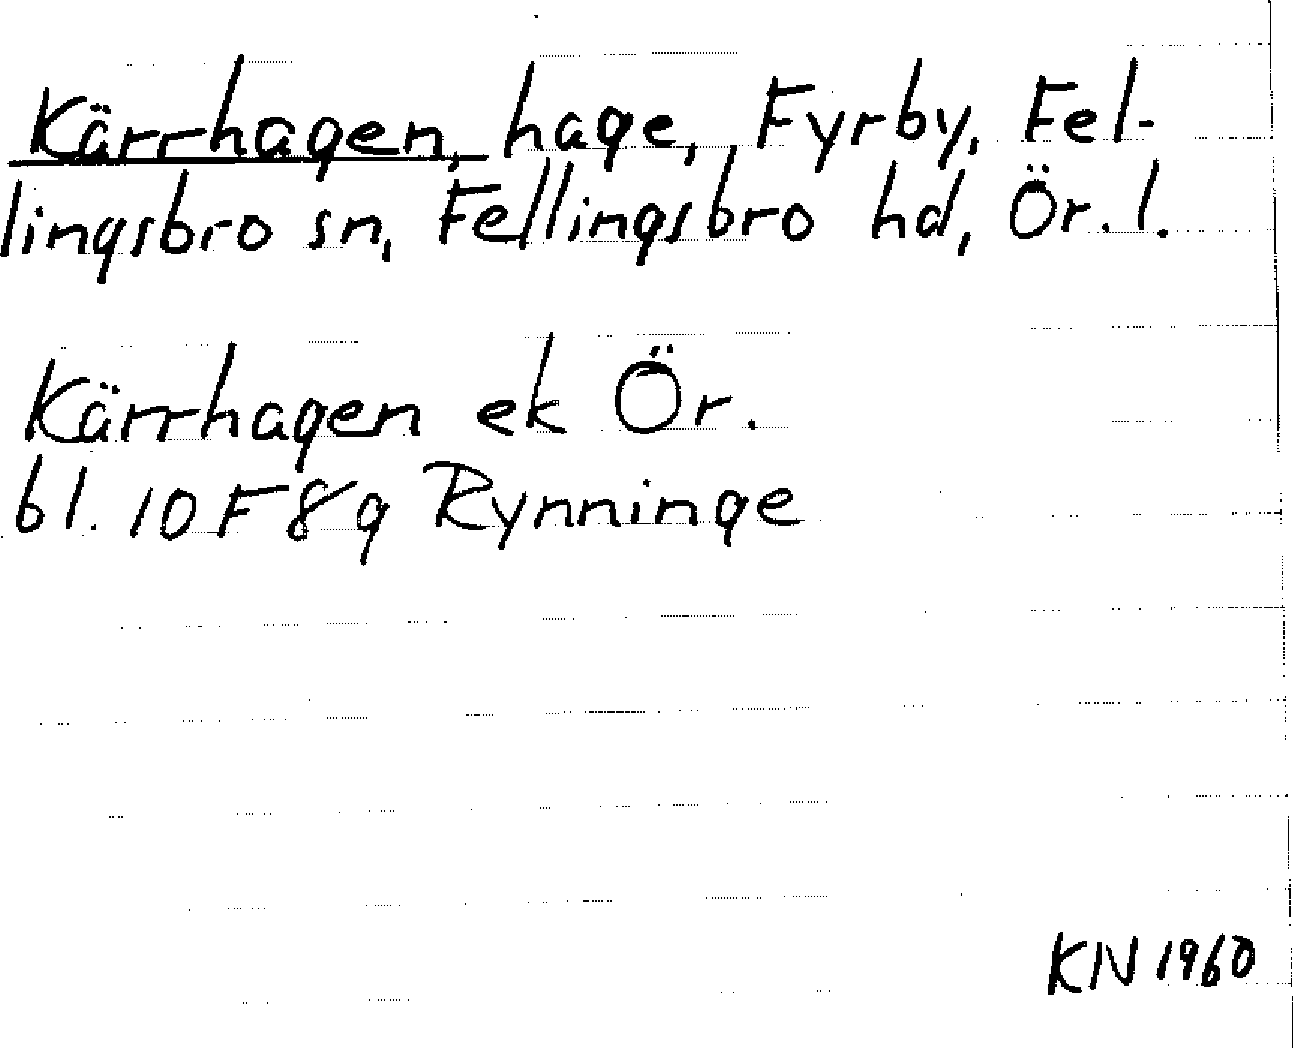 Kärrhagen, hage, Fyrby, Fel-
lingsbro sn, Fellingsbro hd, Ör. l.
Kärrhagen ek Ör.
bl. 10 F 8 g Rynninge
KN 1960